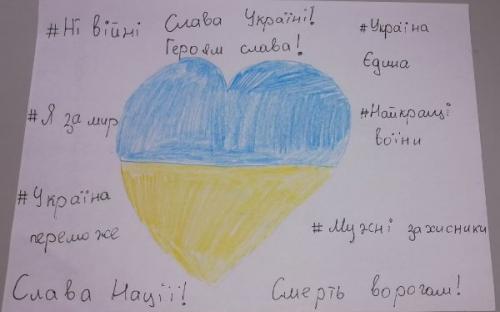 #Ні війні
Слава Україні!
Героям слава!
#Україна
Єдина
#Я за мир
#Найкращі
воїни
#Україна
переможе
#Мужні захисники
Слава Нації!
Смерть ворогам!